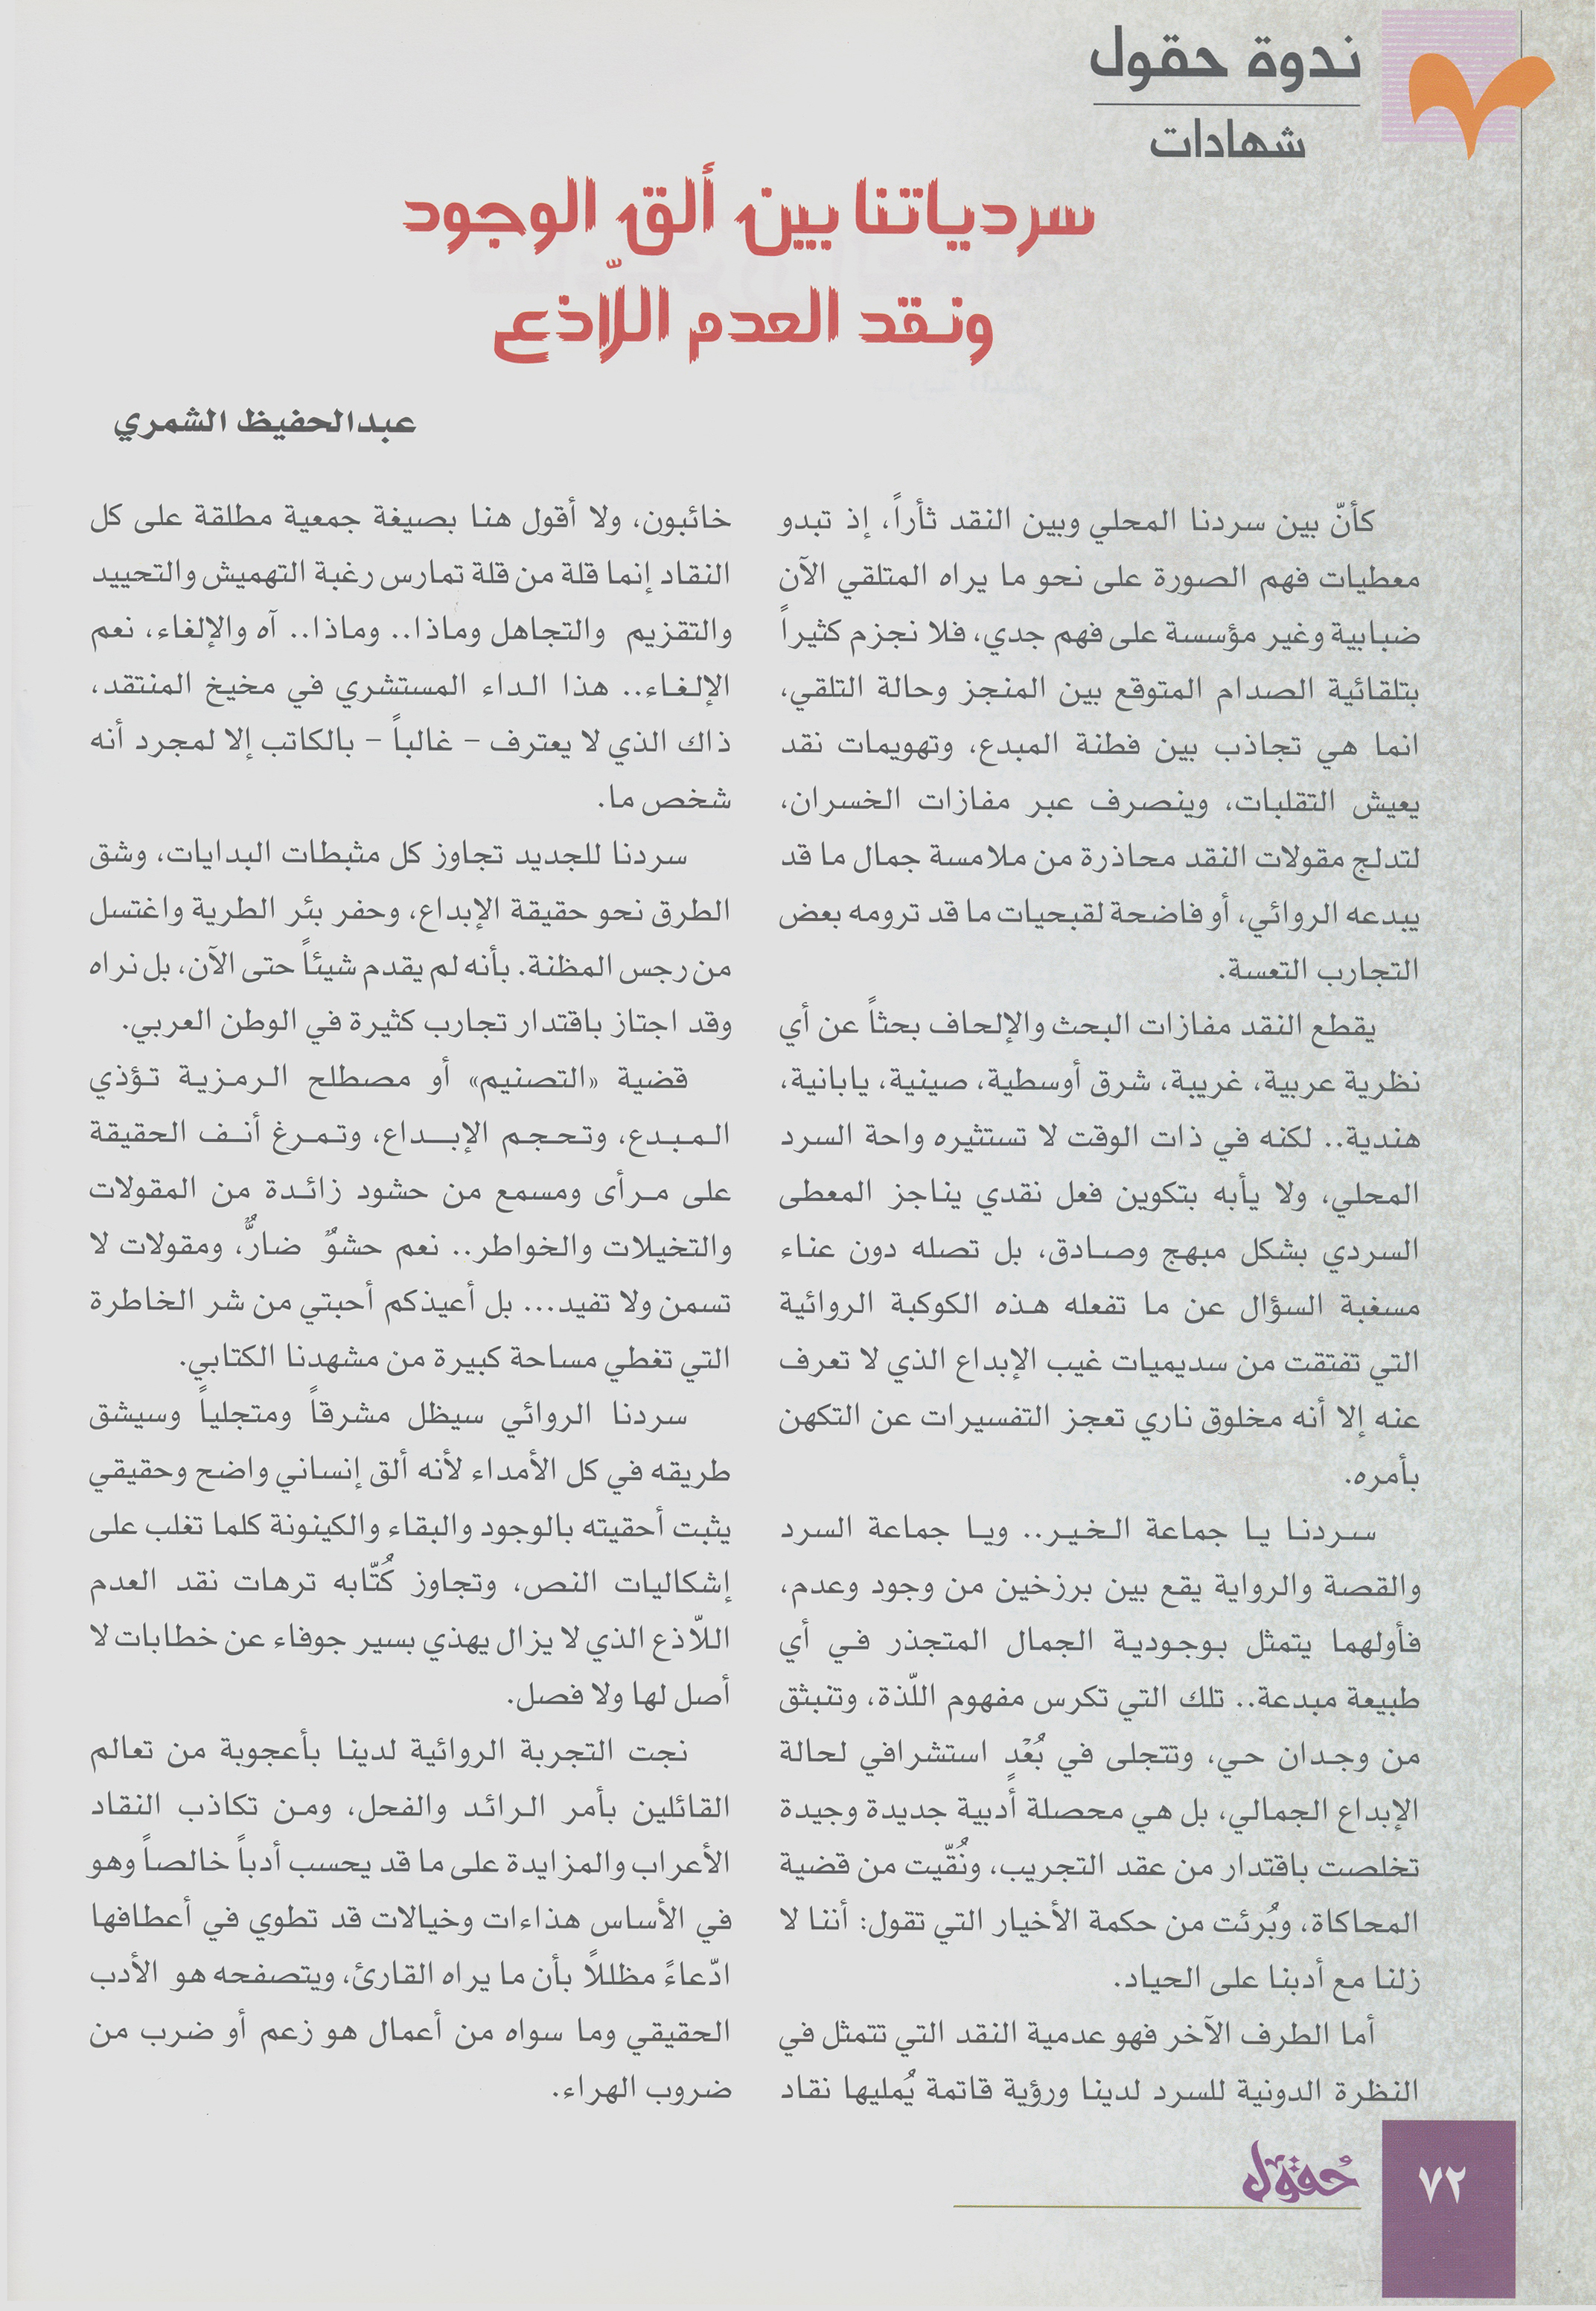 ندوة حقول
شهادات
سردياتنا بين ألق الوجود
ونقد العدم اللّاذع
عبدالحفيظ الشمري
كأنّ بين سردنا المحلي وبين النقد ثأراً، إذ تبدو
معطيات فهم الصورة على نحو ما يراه المتلقي الآن
ضبابية وغير مؤسسة على فهم جدي، فلا نجزم كثيراً
بتلقائية الصدام المتوقع بين المنجز وحالة التلقي،
انما هي تجاذب بين فطنة المبدع، وتهويمات نقد
يعيش التقلبات، وينصرف عبر مفازات الخسران،
لتدلج مقولات النقد محاذرة من ملامسة جمال ما قد
يبدعه الروائي، أو فاضحة لقبحيات ما قد ترومه بعض
التجارب التعسة.
يقطع النقد مفازات البحث والإلحاف بحثاً عن أي
نظرية عربية، غريبة، شرق أوسطية، صينية، يابانية،
هندية.. لكنه في ذات الوقت لا تستثيره واحة السرد
المحلي، ولا يأبه بتكوين فعل نقدي يناجز المعطى
السردي بشكل مبهج وصادق، بل تصله دون عناء
مسغبة السؤال عن ما تفعله هذه الكوكبة الروائية
التي تفتقت من سديميات غيب الإبداع الذي لا تعرف
عنه إلا أنه مخلوق ناري تعجز التفسيرات عن التكهن
بأمره.
سردنا يا جماعة الخير.. ويا جماعة السرد
والقصة والرواية يقع بين برزخين من وجود وعدم،
فأولهما يتمثل بوجودية الجمال المتجذر في أي
طبيعة مبدعة.. تلك التي تكرس مفهوم اللّذة، وتنبثق
من وجدان حي، وتتجلى في بُعْدٍ استشرافي لحالة
الإبداع الجمالي، بل هي محصلة أدبية جديدة وجيدة
تخلصت باقتدار من عقد التجريب، ونُقّيت من قضية
المحاكاة، وبُرئت من حكمة الأخيار التي تقول: أننا لا
زلنا مع أدبنا على الحياد.
أما الطرف الآخر فهو عدمية النقد التي تتمثل في
النظرة الدونية للسرد لدينا ورؤية قاتمة يُمليها نقاد
خائبون، ولا أقول هنا بصيغة جمعية مطلقة على كل
النقاد إنما قلة من قلة تمارس رغبة التهميش والتحييد
والتقزيم والتجاهل وماذا.. وماذا.. آه والإلغاء، نعم
الإلغاء.. هذا الداء المستشري في مخيخ المنتقد،
ذاك الذي لا يعترف – غالباً – بالكاتب إلا لمجرد أنه
شخص ما.
سردنا للجديد تجاوز كل مثبطات البدايات، وشق
الطرق نحو حقيقة الإبداع، وحفر بئر الطرية واغتسل
من رجس المظنة. بأنه لم يقدم شيئاً حتى الآن، بل نراه
وقد اجتاز باقتدار تجارب كثيرة في الوطن العربي.
قضية «التصنيم» أو مصطلح الرمزية تؤذي
المبدع، وتحجم الإبداع، وتمرغ أنف الحقيقة
على مرأى ومسمع من حشود زائدة من المقولات
والتخيلات والخواطر.. نعم حشوٌ ضارٌّ، ومقولات لا
تسمن ولا تفيد... بل أعيذكم أحبتي من شر الخاطرة
التي تغطي مساحة كبيرة من مشهدنا الكتابي.
سردنا الروائي سيظل مشرقاً ومتجلياً وسيشق
طريقه في كل الأمداء لأنه ألق إنساني واضح وحقيقي
يثبت أحقيته بالوجود والبقاء والكينونة كلما تغلب على
إشكاليات النص، وتجاوز كُتّابه ترهات نقد العدم
اللّاذع الذي لا يزال يهذي بسير جوفاء عن خطابات لا
أصل لها ولا فصل.
نجت التجربة الروائية لدينا بأعجوبة من تعالم
القائلين بأمر الرائد والفحل، ومن تكاذب النقاد
الأعراب والمزايدة على ما قد يحسب أدباً خالصاً وهو
في الأساس هذاءات وخيالات قد تطوي في أعطافها
ادّعاءً مظللاً بأن ما يراه القارئ، ويتصفحه هو الأدب
الحقيقي وما سواه من أعمال هو زعم أو ضرب من
ضروب الهراء.
حقول
٧٢